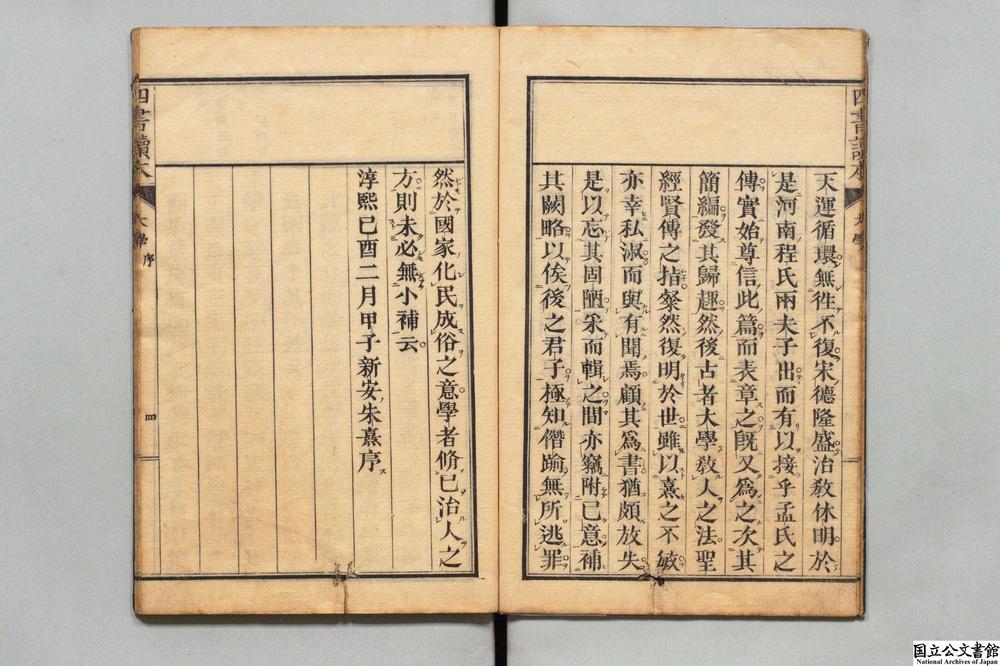 四書讀本
大學
天運循環無徃不復宋德隆盛治敎休明於
是河南程氏兩夫子出而有以接乎孟氏之
傳實始尊信此篇而表章之旣又爲之次其
簡編發其歸趣然後古者大學敎人之法聖
經賢傳之指粲然復明於世雖以熹之不敏
亦幸私淑而與有聞焉顧其爲書猶頗放失
是以忘其固陋采而輯之間亦竊附己意補
其闕略以俟後之君子極知僭踰無所逃罪
然於國家化民成俗之意學者脩己治人之
方則未必無小補云
淳熙己酉二月甲子新安朱熹序
四書讀本
大學序
四
国立公文書館
National Archives of Japan